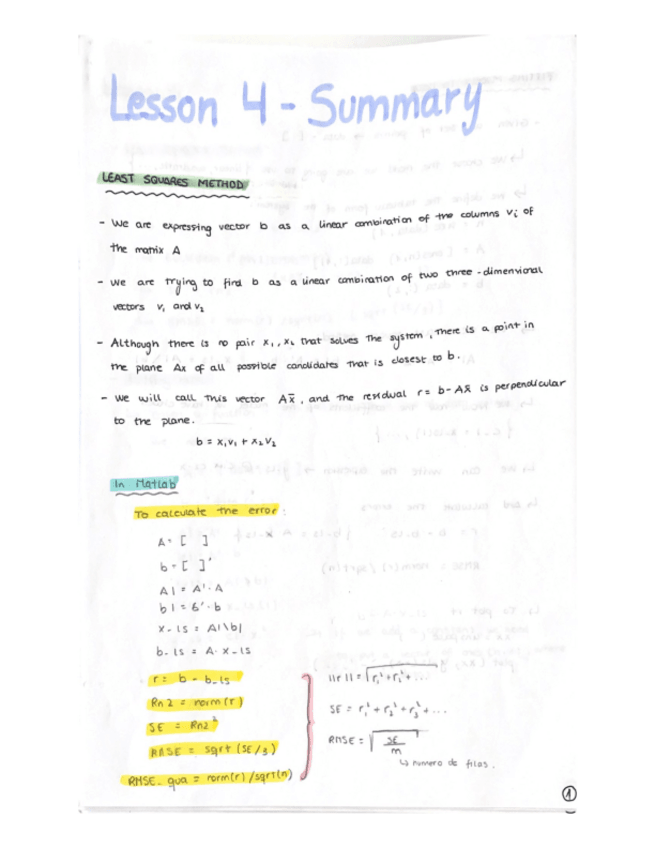 Lesson 4 - Summary
LEAST SQUARES METHOD
- We are expressing vector b as a linear combination of the columns vi of
the matrix A
- we are trying to find b as a linear combination of two three-dimensional
vectors v₁ and v₂
- Although there is no pair x₁, x₂ that solves the system, there is a point in
the plane Ax of all possible candidates that is closest to b.
- we will call this vector Ax̄, and the residual r = b - Ax̄ is perpendicular
to the plane.
b = x₁v₁ + x₂v₂
In Matlab
To calculate the error:
A = [ ]
b = [ ]'
A1 = A' · A
b1 = 6' · b
x_ls = A1\b1
b_ls = A · x_ls
r = b - b_ls
Rn2 = norm(r)
SE = Rn2²
RMSE = sqrt(SE/3)
RMSE_qua = norm(r)/sqrt(n)
||r|| = √r₁² + r₂² + ...
SE = r₁² + r₂² + r₃² + ...
RMSE = √SE/m
↳ numero de filas.
1